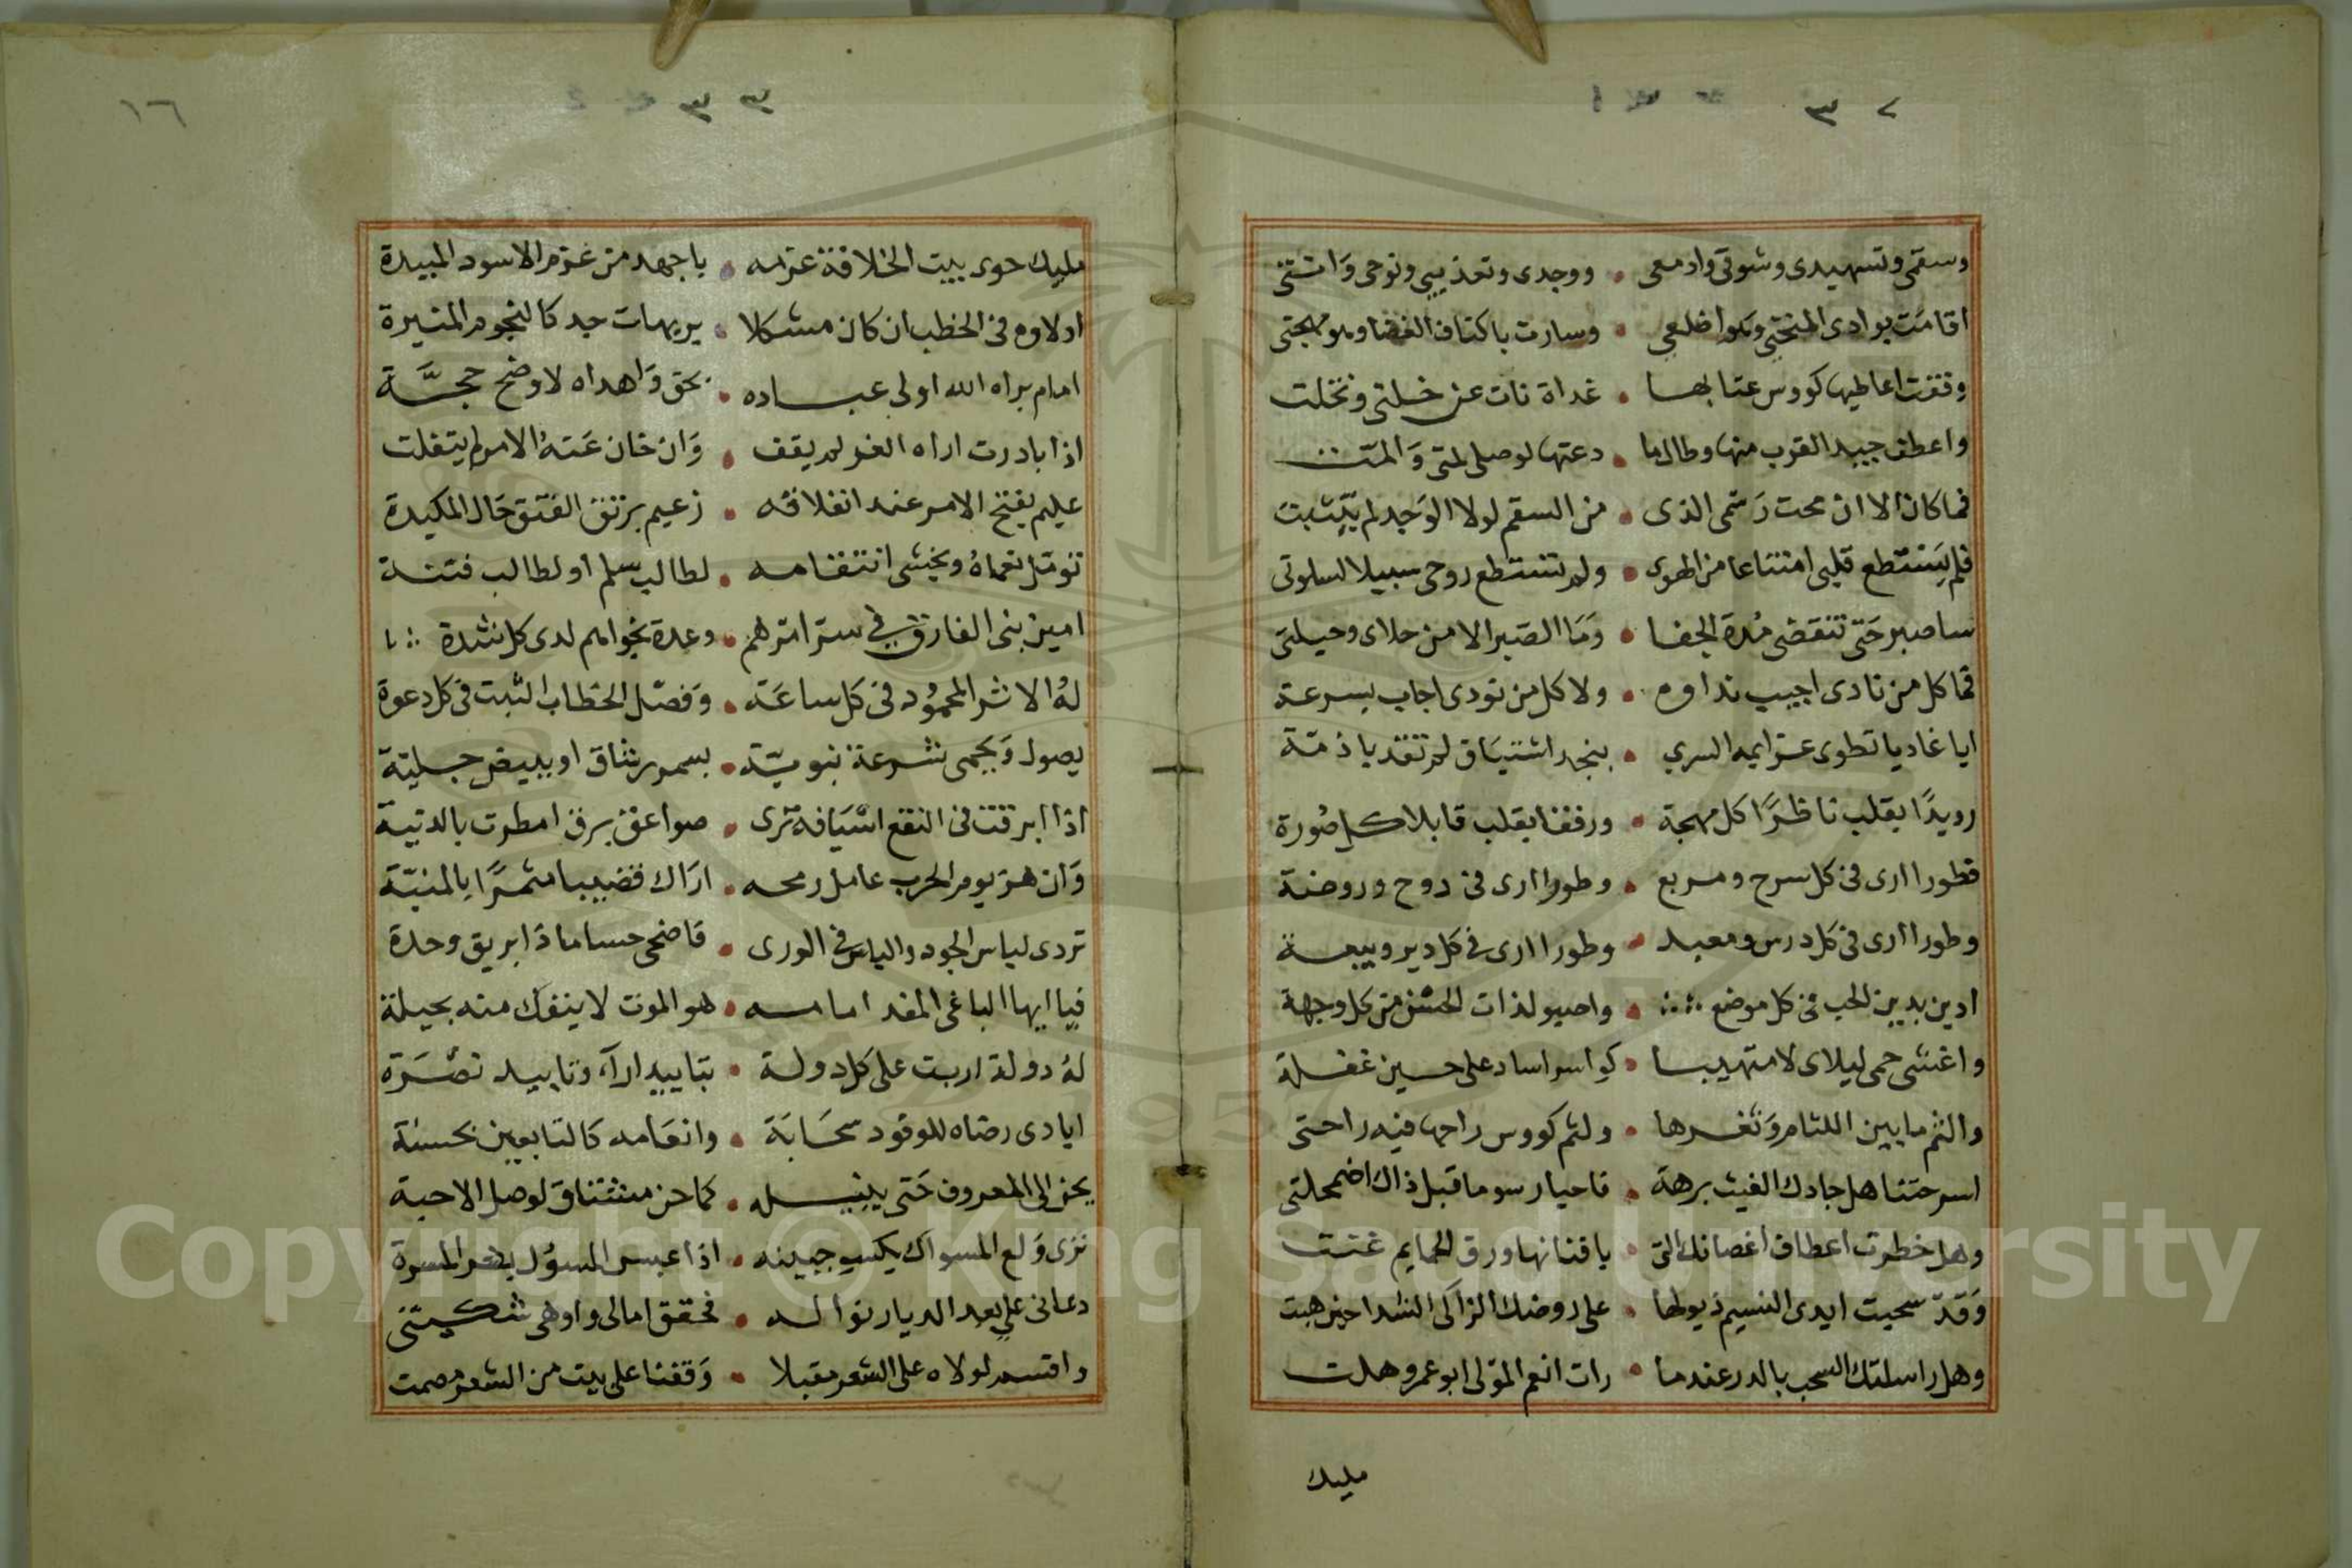 ٣٢
وسقمى وتسهيدى وشوقى وادمعى • ووجدى وتعذيبى ونوحى وانتنى
اقامت بوادى المنحنى وهو اضلعى • وسارت باكتاف الغضا وهو مهجتى
وقفت اعاطيها كووس عتابها • غداة نات عن خلتى وتخلت
واعطف جيد القرب منها وطالما • دعتها لوصلى لمتى والمت
فما كان الا ان محت رسمى الذى • من السقم لولا الوجد لم يتثبت
فلم يستطع قلبى امتناعا من الهوى • ولم تستطع روحى سبيلا لسلوتى
ساصبر حتى تنقضى مدة الجفا • وما الصبر الا من حلاى وحيلتى
فما كل من نادى اجيب نداوه • ولا كل من نودى اجاب بسرعة
ايا غاديا تطوى عزايمه السري • بنجد اشتياق لم تقد ياذمة
رويدًا بقلب ناظرًا كل مهجة • ورفقا بقلب قابلا كل صورة
فطورا ارى فى كل سرح ومربع • وطورا ارى فى دوح وروضة
وطورا ارى فى كل درس ومعبد • وطورا ارى فى كل دير وبيعة
ادين بدين الحب فى كل موضع • واصبو لذات الحسن من كل وجهة
واغشى حمى ليلاى لا متهيبا • كواسر اساد على حين غفلة
والثم ما بين اللثام وثغرها • ولثم كووس راحها فيه راحتى
اسرحتنا هل جادك الغيث برهة • فاحيا رسوما قبل ذاك اضمحلتى
وهل خطرت اعطاف اغصانك التى • بافنانها ورق الحمايم غنت
وقد سحبت ايدى النسيم ذيولها • على روضك الزاكى الشدا حين هبت
وهل راسلتك السحب بالدر عندما • رات انعم المولى ابو عمرو هلت
مليك
١٦
٣٣
مليك حوى بيت الخلافة عزمه • باجهد من عزم الاسود المبيدة
اولاوه فى الخطب ان كان مشكلا • يريهات جد كالنجوم المنيرة
امام براه الله اولى عباده • بحق واهداه لاوضح حجة
اذا بادرت اراه الغر لم يقف • وان خان عنه الامر لم يتفلت
عليم بفتح الامر عند انغلاقه • زعيم برتق الفتق حال المكيدة
تومل نعماه ويخشى انتقامه • لطالب سلم او لطالب فتنة
امين بنى الفاروق فى ستر امرهم • وعدة نجواهم لدى كل شدة
له الاثر المحمود فى كل ساعة • وفصل الخطاب الثبت فى كل دعوة
يصول ويحمى شرعة نبوية • بسمر رشاق او ببيض جلية
اذا ابرقت فى النقع اسيافه ترى • صواعق برق امطرت بالدنية
وان هز يوم الحرب عامل رمحه • اراك قضيبا مثمرًا بالمنية
تردى لباس الجود والباس فى الورى • فاضحى حساما ذا بريق وحدة
فيا ايها الباغى المفد امامه • هو الموت لا ينفك منه بحيلة
له دولة اربت على كل دولة • بتاييد اراء وتاييد نصرة
ايادى رضاه للوفود سحابة • وانعامه كالتابعين بحسنة
يحن الى المعروف حتى ينيله • كما حن مشتاق لوصل الاحبة
نرى ولع المسواك يكسب جبينه • اذا عبس المسؤل بشر المسرة
دعانى على بعد الديار نواله • فحقق امالى واوهى شكيتى
واقسم لولاه على الشعر مقبلا • وقفنا على بيت من الشعر مصمت